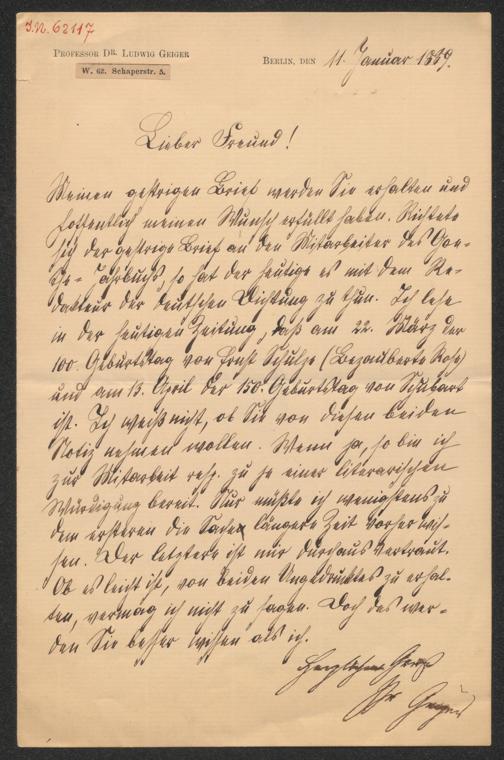 J.N. 62117
PROFESSOR DR. LUDWIG GEIGER
W. 62. Schaperstr. 5.
BERLIN, DEN 11. Januar 1889.
Lieber Freund!
Meinen gestrigen Brief werden Sie erhalten und
hoffentlich meinen Wunsch erfüllt haben. Richtete
sich der gestrige Brief an den Mitarbeiter des Goe-
the-Jahrbuchs, so hat der heutige es mit dem Re-
dakteur der deutschen Dichtung zu thun. Ich lese
in der heutigen Zeitung, daß am 22. März der
100. Geburtstag von Ernst Schulze (Bezauberte Rose)
und am 13. April der 150. Geburtstag von Schubart
ist. Ich weiß nicht, ob Sie von diesen beiden
Notiz nehmen wollen. Wenn ja, so bin ich
zur Mitarbeit resp. zu je einer literarischen
Würdigung bereit. Nur müßte ich wenigstens zu
dem ersteren die Sache längere Zeit vorher wis-
sen. Der letztere ist mir durchaus vertraut.
Ob es leicht ist, von beiden Ungedrucktes zu erhal-
ten, vermag ich nicht zu sagen. Doch das wer-
den Sie besser wissen als ich.
Herzlichen Gruß
Ihr Geiger